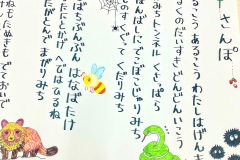 さんぽ
こう あるこう わたしはげんき
るくのだいすき どんどんいこう
みち トンネル くさっぱら
っぽんばしに でこぼこじゃりみち
ものす くぐって くだりみち
ばち ぶんぶん はなばたけ
たに とかげ へびはひるね
たがとんで まがりみち
ねも たぬきも でておいで